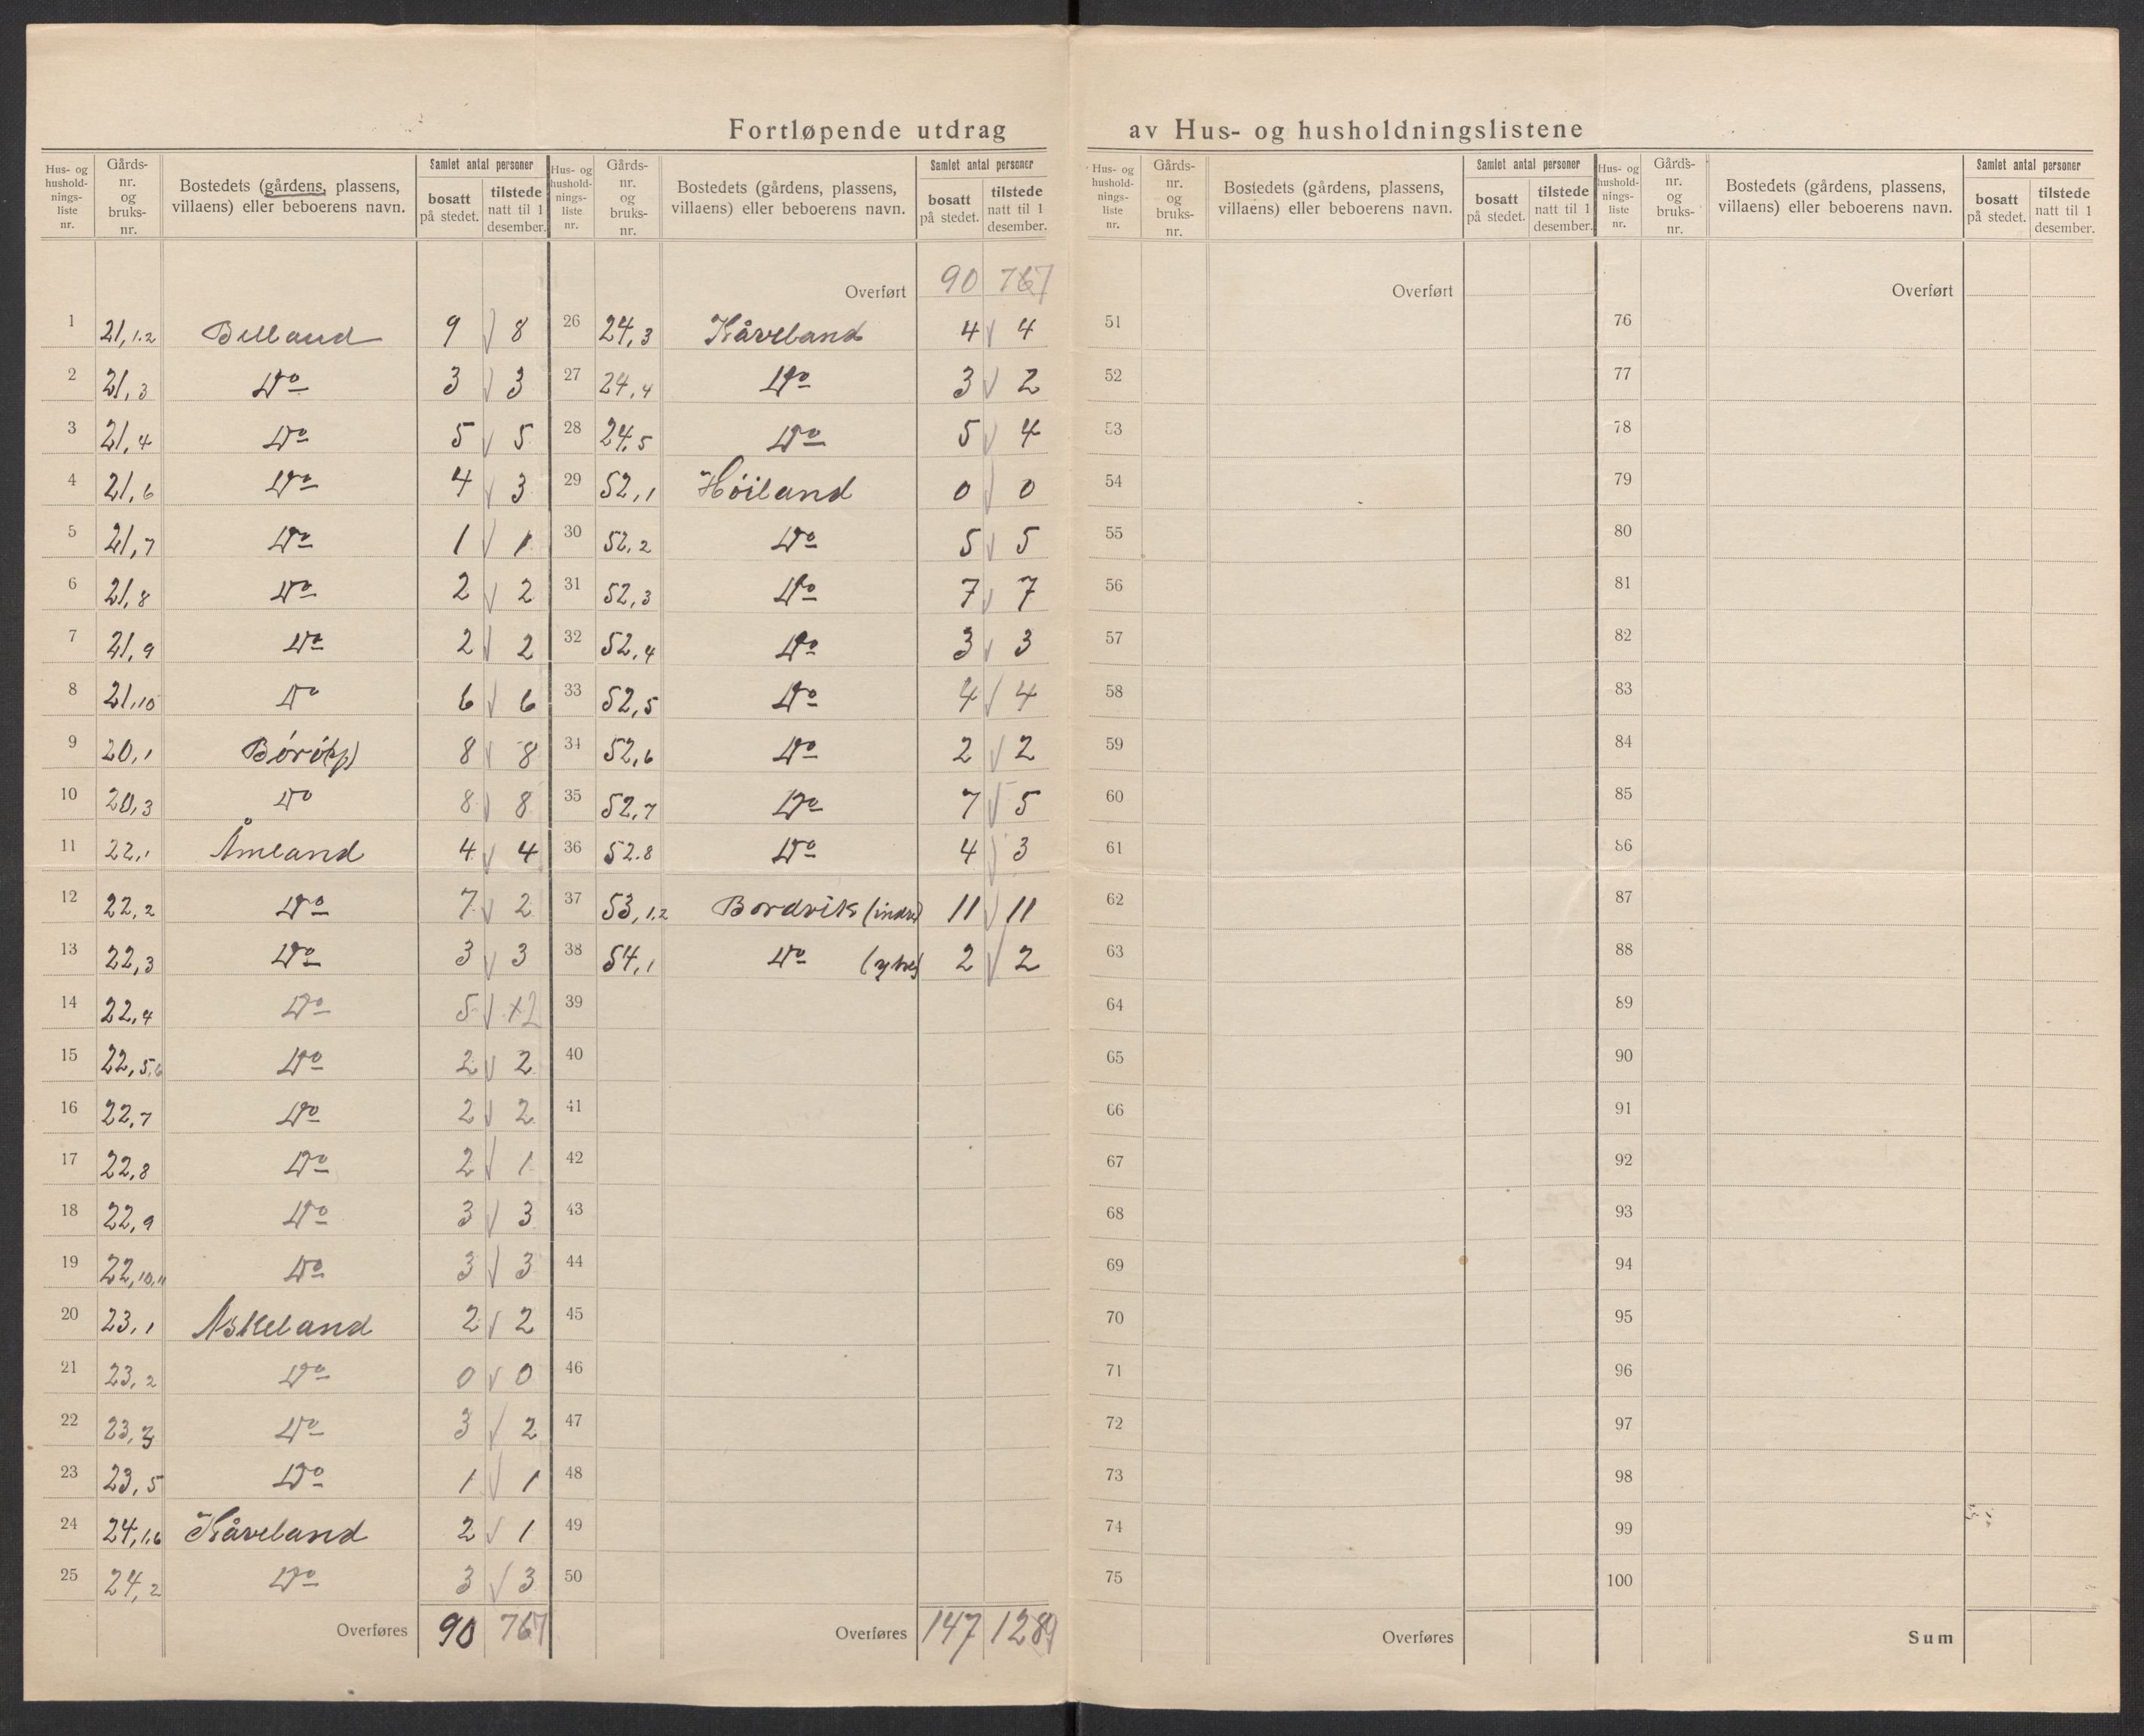 Fortløpende utdrag av Hus- og husholdningslistene
Hus- og hushold-nings-liste nr. | Gårds-nr. og bruks-nr. | Bostedets (gårdens, plassens, villaens) eller beboerens navn. | Samlet antal personer | bosatt på stedet. | tilstede natt til 1 desember.
1 21,1.2 Belland 9 √ 8
2 21,3 Do 3 √ 3
3 21,4 Do 5 √ 5
4 21,6 Do 4 √ 3
5 21,7 Do 1 √ 1
6 21,8 Do 2 √ 2
7 21,9 Do 2 √ 2
8 21,10 Do 6 √ 6
9 20,1 8 √ 8
10 20,3 Do 8 √ 8
11 22,1 Åmland 4 √ 4
12 22,2 Do 7 √ 2
13 22,3 Do 3 √ 3
14 22,4 Do 5 √ 2
15 22,5.6 Do 2 √ 2
16 22,7 Do 2 √ 2
17 22,8 Do 2 √ 1
18 22,9 Do 3 √ 3
19 22,10,11 Do 3 √ 3
20 23,1 Askeland 2 √ 2
21 23,2 Do 0 √ 0
22 23,3 Do 3 √ 2
23 23,5 Do 1 √ 1
24 24,1.6 Kåveland 2 √ 1
25 24,2 Do 3 √ 3
Overføres 90
Hus- og hushold-nings-liste nr. | Gårds-nr. og bruks-nr. | Bostedets (gårdens, plassens, villaens) eller beboerens navn. | Samlet antal personer | bosatt på stedet. | tilstede natt til 1 desember.
Overført 90
26 24,3 Kåveland 4 √ 4
27 24,4 Do 3 √ 2
28 24,5 Do 5 √ 4
29 52,1 Höiland 0 √ 0
30 52,2 Do 5 √ 5
31 52,3 Do 7 √ 7
32 52,4 Do 3 √ 3
33 52,5 Do 4 √ 4
34 52,6 Do 2 √ 2
35 52,7 Do 7 √ 5
36 52.8 Do 4 √ 3
37 53,1.2 Bordvik (indre) 11 √ 11
38 54,1 Do (ytre) 2 √ 2
39
40
41
42
43
44
45
46
47
48
49
50
Overføres 147
Hus- og hushold-nings-liste nr. | Gårds-nr. og bruks-nr. | Bostedets (gårdens, plassens, villaens) eller beboerens navn. | Samlet antal personer | bosatt på stedet. | tilstede natt til 1 desember.
Overført
51
52
53
54
55
56
57
58
59
60
61
62
63
64
65
66
67
68
69
70
71
72
73
74
75
Overføres
Hus- og hushold-nings-liste nr. | Gårds-nr. og bruks-nr. | Bostedets (gårdens, plassens, villaens) eller beboerens navn. | Samlet antal personer | bosatt på stedet. | tilstede natt til 1 desember.
Overført
76
77
78
79
80
81
82
83
84
85
86
87
88
89
90
91
92
93
94
95
96
97
98
99
100
Sum